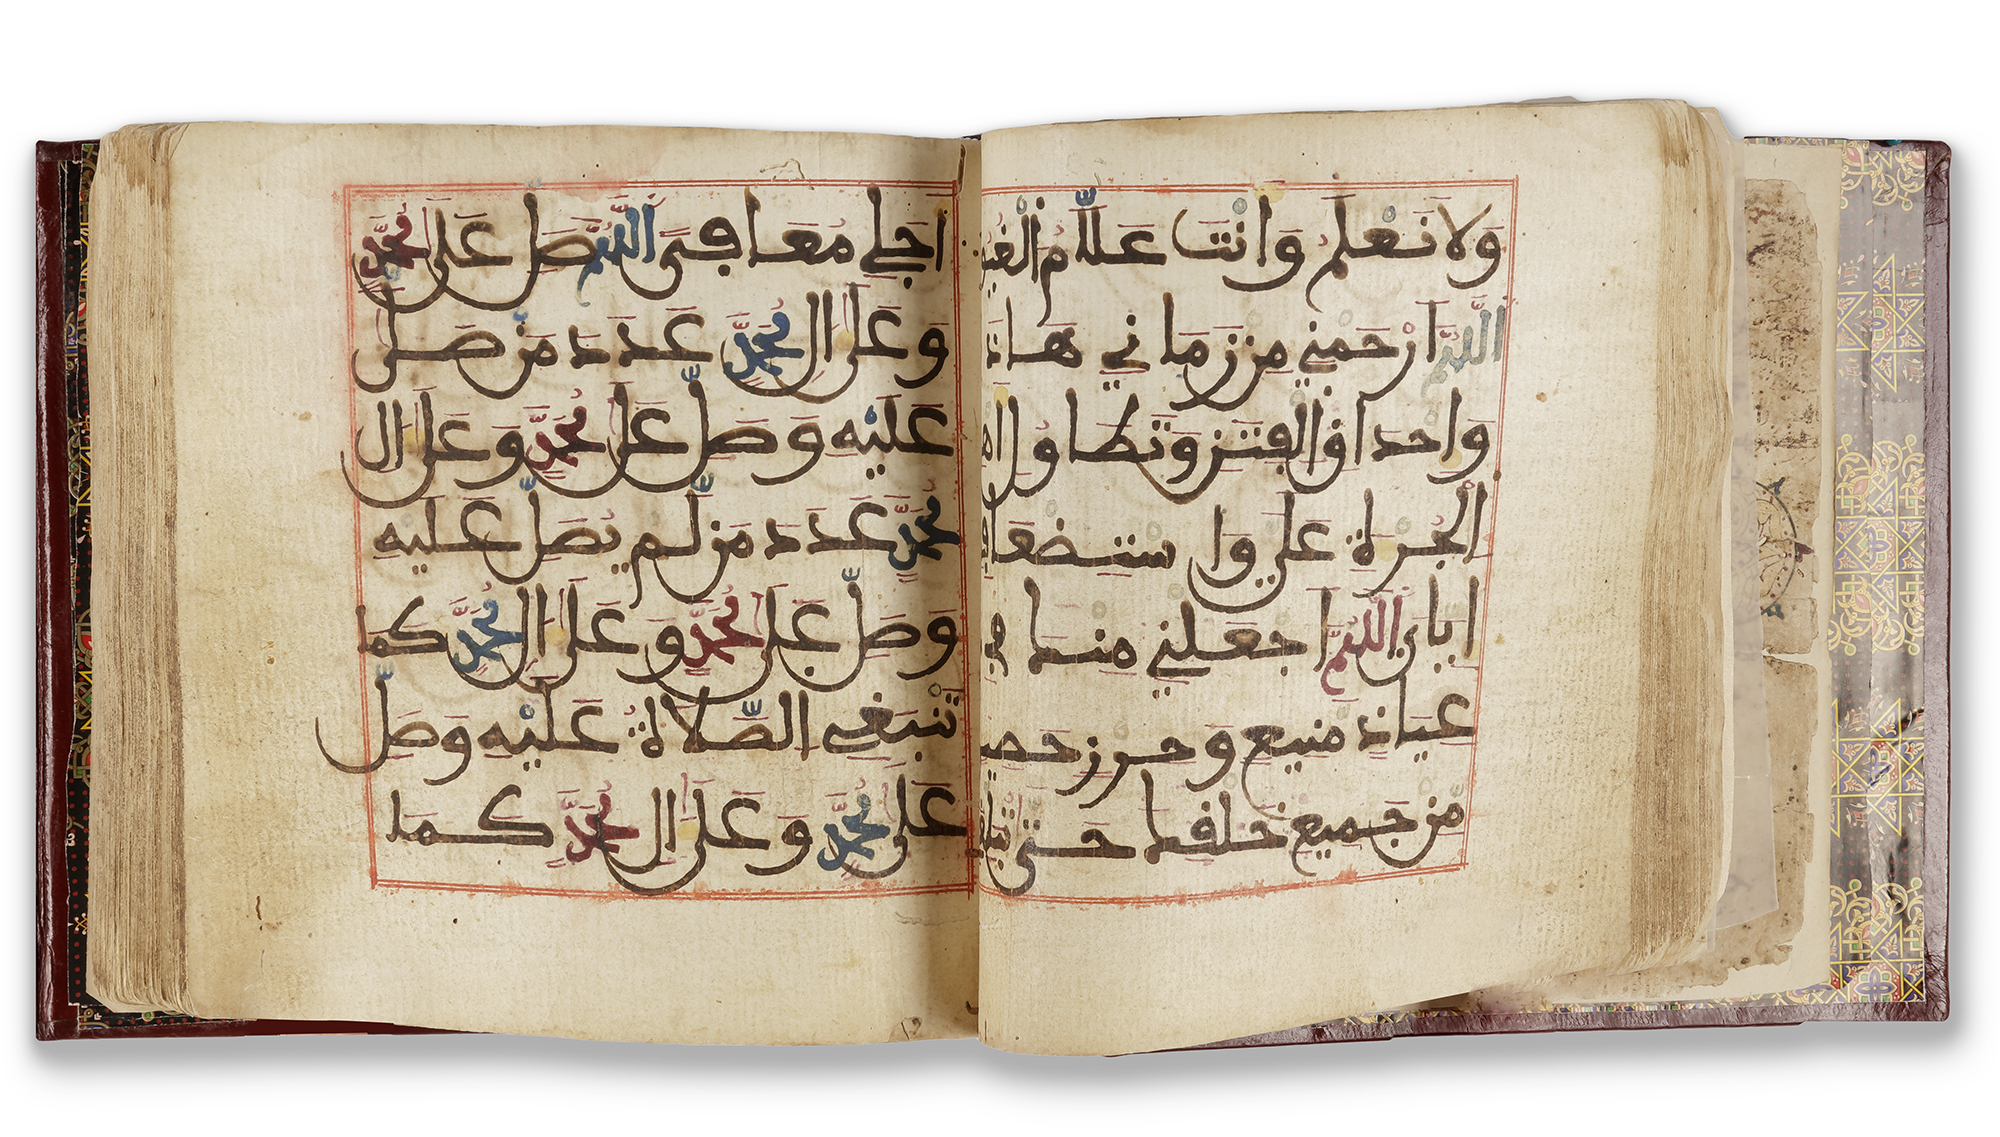 وَلَا نَعْلَمُ وَأَنْتَ عَلَّامُ
اللَّهُمَّ ارْحَمْنِي مِن زَمَانِي هَاذَا
وَاحْدَاقِ الفِتَنِ وَتَطَاوُلِ
الجُرْأَةِ عَلَيَّ وَاسْتِضْعَافِ
إِيَّايَ اللَّهُمَّ اجْعَلْنِي مِنْكَ فِي
عِيَاذٍ مَنِيعٍ وَحِرْزٍ
مِّن جَمِيعِ خَلْقِكَ حَتَّى
أَجَلِي مُعَافًى اللَّهُمَّ صَلِّ عَلَى مُحَمَّدٍ
وَعَلَى آلِ مُحَمَّدٍ عَدَدَ مَنْ صَلَّى
عَلَيْهِ وَصَلِّ عَلَى مُحَمَّدٍ وَعَلَى آلِ
مُحَمَّدٍ عَدَدَ مَن لَّمْ يُصَلِّ عَلَيْهِ
وَصَلِّ عَلَى مُحَمَّدٍ وَعَلَى آلِ مُحَمَّدٍ كَمَا
تَنْبَغِي الصَّلَاةُ عَلَيْهِ وَصَلِّ
عَلَى مُحَمَّدٍ وَعَلَى آلِ مُحَمَّدٍ كَمَا